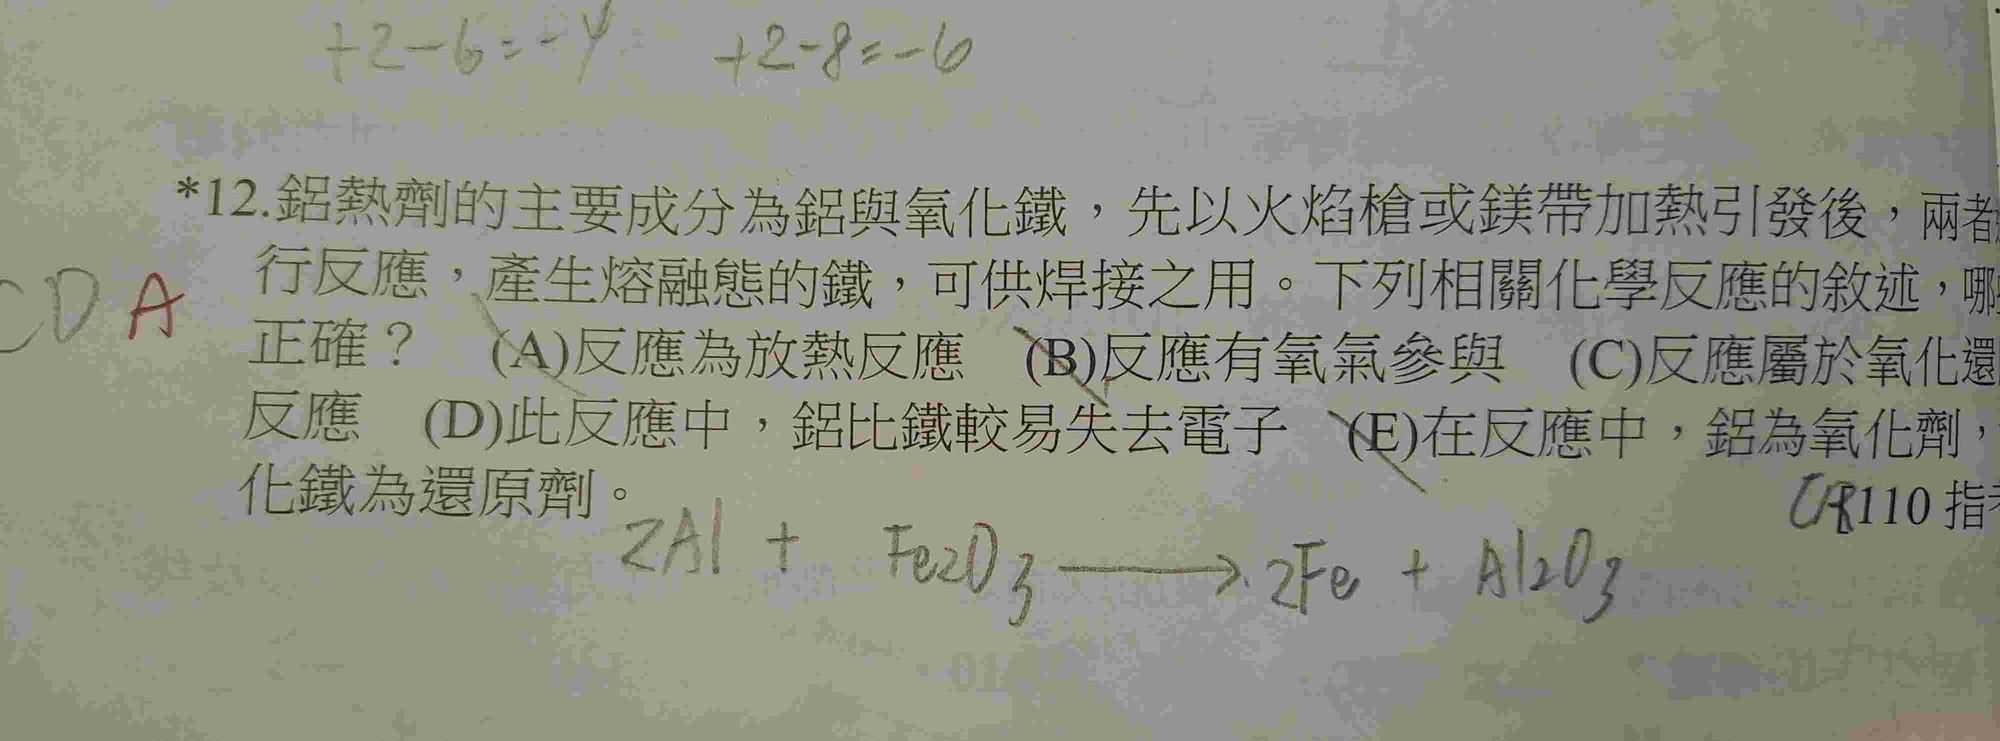 +2-6=-4 +2-8=-6
*12.鋁熱劑的主要成分為鋁與氧化鐵，先以火焰槍或鎂帶加熱引發後，兩者
行反應，產生熔融態的鐵，可供焊接之用。下列相關化學反應的敘述，哪
CD A
正確？ (A)反應為放熱反應 (B)反應有氧氣參與 (C)反應屬於氧化還
反應 (D)此反應中，鋁比鐵較易失去電子 (E)在反應中，鋁為氧化劑，
化鐵為還原劑。
110 指考
2Al + Fe2O3 → 2Fe + Al2O3